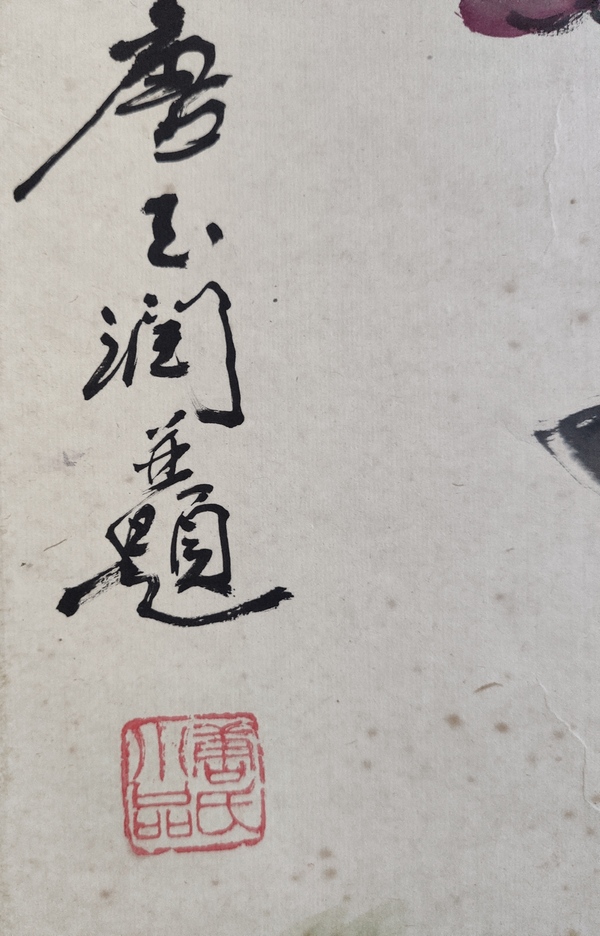 唐玉潤並題
唐氏
小品